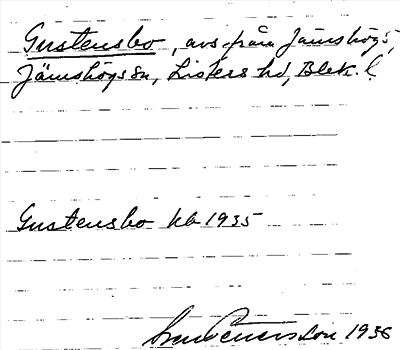 Gustensbo, avs. från Jämshög 5,
Jämshögs sn, Listers hd, Blek. l.
Gustensbo kb 1935
1936